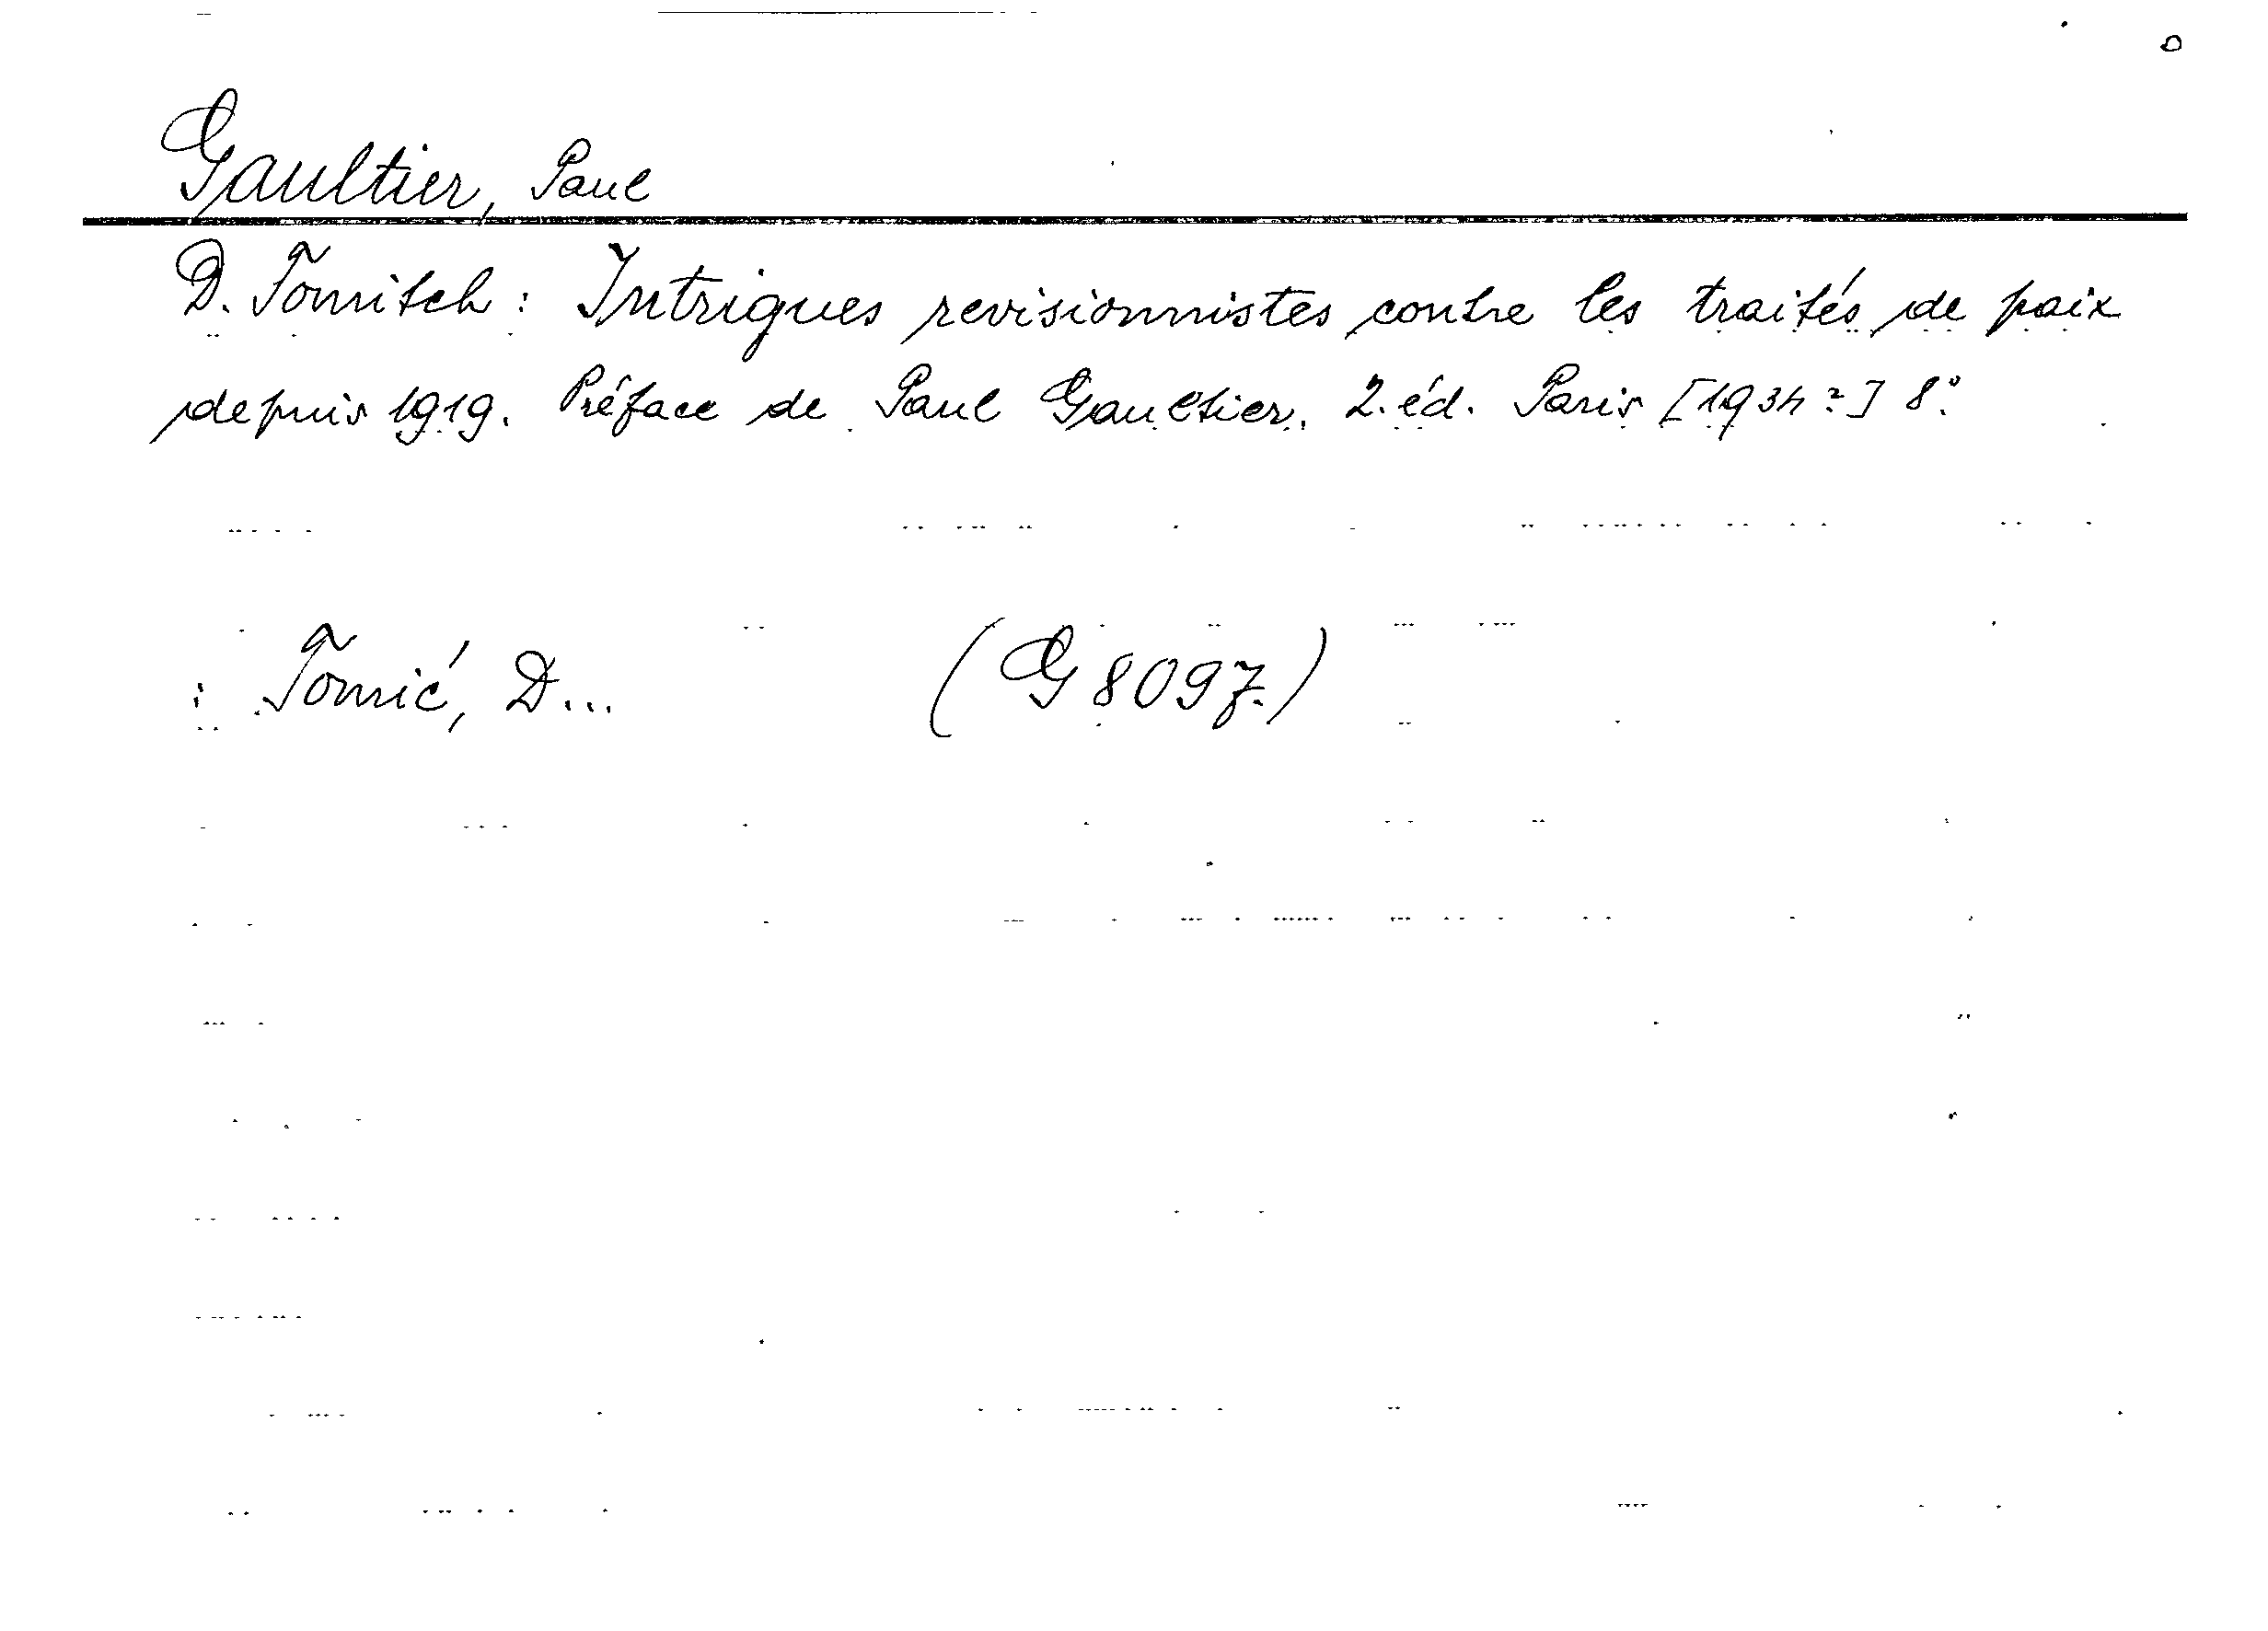 Gaultier, Paul
D. Tomitch: Intrigues revisionnistes contre les traités de paix
depuis 1919. Préface de Paul Gaultier. 2. éd. Paris [1934?] 8°.
: Tomić, D... (G 8097.)